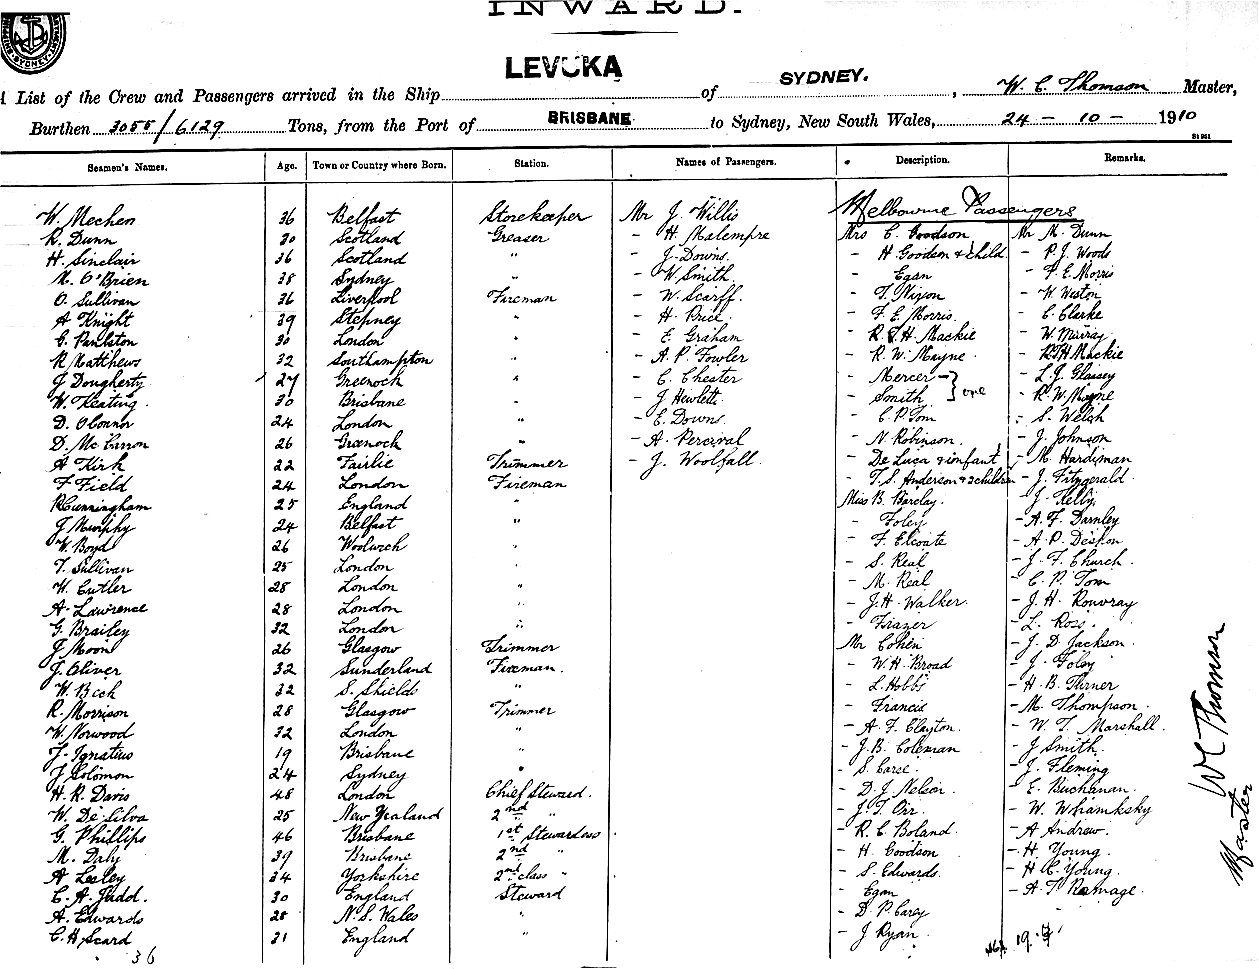 INWARD.
SYDNEY
LEVUKA
SYDNEY.
A List of the Crew and Passengers arrived in the Ship of , W. C. Thomson Master,
Burthen 3055/6129 Tons, from the Port of BRISBANE to Sydney, New South Wales, 24 - 10 - 1910
Seamen's Names. Age. Town or Country where Born. Station. Names of Passengers. Description. Remarks.
Melbourne Passengers
W. Mechen 36 Belfast Storekeeper Mr J. Willis
R. Dunn 30 Scotland Greaser - H Malempre Mrs C. Goodson Mr M. Dunn
H. Sinclair 36 Scotland " - J. Downs. - H Goodson & child - P. J. Woods
M. O'Brien 38 Sydney " - W. Smith. - Egan - F. E. Morris
O. Sullivan 36 Liverpool Fireman - W. Scarff. - T. Nixon - W Weston
A Knight 39 Stepney " - H. Price. - F. E. Morris. - C. Clarke
C. Panlston 30 London " - E. Graham - R. F. H. Mackie - W. Murray
R Matthews 32 Southampton " - A. P. Fowler - R. W. Mayne - RFH Mackie
J Dougherty 27 Greenock " - C. Chester - Mercer - L. J. Glassey
W. Keating 30 Brisbane " - J Hewlett. - Smith } one - R. W. Mayne
D. O'Connor 24 London " - E. Downs. - C. P. Tom - S. Welsh
D. McCarron 26 Greenock " - A. Percival - N. Robinson. - J. Johnson
A Kirk 22 Fairlie Trimmer - J. Woolfall. - De Luca & infant - M. Hardiman
F Field 24 London Fireman - T. S. Anderson & 2 children - J. Fitzgerald
R Cunningham 25 England Miss B. Barclay. - J. Kelly
J Murphy 24 Belfast " - Foley - A. F. Darnley
W. Boyd 26 Woolwich " - F. Elcoate - A. P.
T. Sullivan 25 London " - S. Real - J. F. Church.
W. Cutler 28 London " - M. Real - C. P. Tom
A. Lawrence 28 London " - J. H. Walker. - J. H. Rouvray
G. Brailey 32 London " - Frazer - L. Ross.
J Moon 26 Glasgow Trimmer Mr Cohen - J. D Jackson.
J. Oliver 32 Sunderland Fireman. - W. H. Broad - J. Foley
W. 32 S. Shields " - L. Hobbs - H. B. Turner
R. Morrison 28 Glasgow Trimmer - Francis - M. Thompson.
W. Norwood 32 London " - A. F. Clayton. - W. T. Marshall.
J. Ignatius 19 Brisbane " - J. B. Coleman - J Smith.
J Solomon 24 Sydney " - S. Carse. - J. Fleming
H. R. Davis 48 London Chief Steward. - D. J. Nelson. - E. Buchanan.
W. De Silva 25 New Zealand 2nd " - J. T. Orr. - W.
G. Phillips 46 Brisbane 1st Stewardess - R. C. Boland. - A Andrew.
M. Daly 39 Brisbane 2nd " - H. Goodson - H. Young.
A Lesley 34 Yorkshire 2nd class " - S. Edwards. - H C. Young.
C. A. Judd. 30 England Steward - Egan - A T Ramage.
A. Edwards 28 N. S. Wales " - D. P. Carey
C. H. Scard 21 England " - J Ryan.
36
W C Thomson
Master